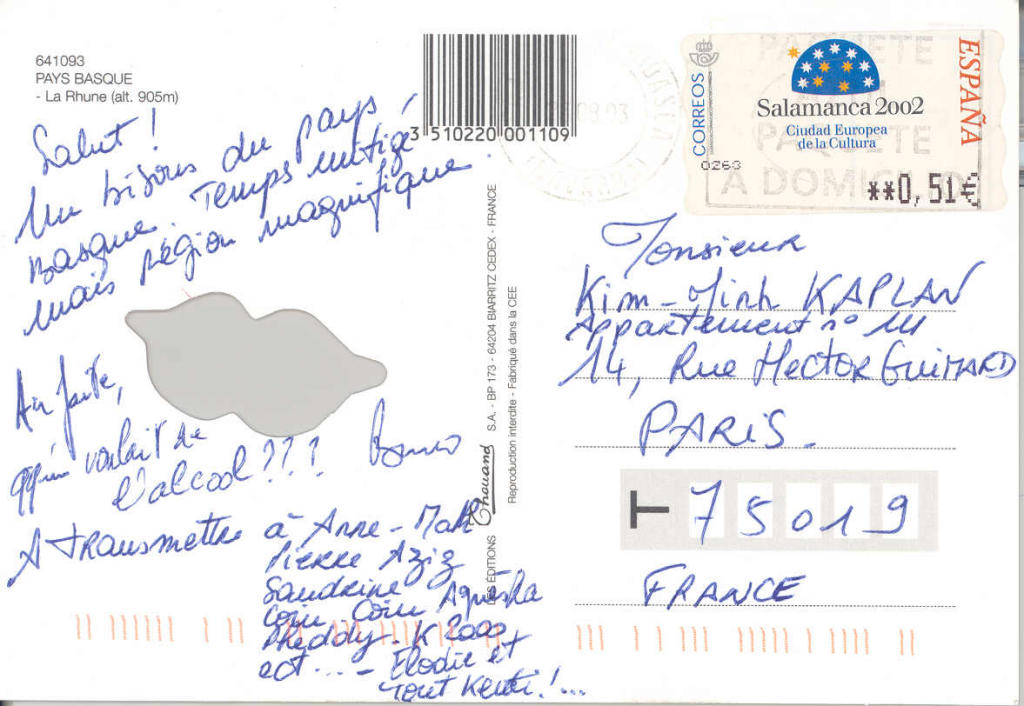 641093
PAYS BASQUE
- La Rhune (alt. 905m)
3 510220 001109
CORREOS
ESPAÑA
Salamanca 2002
Ciudad Europea
de la Cultura
0263
**0,51€
PAQUETE
PAQUETE
A DOMICILIO
Salut !
Un bisous du pays
Basque. Temps mitigé
mais région magnifique.
Au faite,
qq'un voulait de
l'alcool ???
A transmettre à Anne-Mah
Pierre Aziz
Sandrine
Coin Coin Agnishka
Pheddy - K 2000
ect...- Elodie et
tout Kenti !...
LES ÉDITIONS Chouand S.A. - BP 173 - 64204 BIARRITZ CEDEX - FRANCE
Reproduction interdite - Fabriqué dans la CEE
Monsieur
Kim-Minh KAPLAN
Appartement n° 111
14, Rue Hector Guimard
PARIS.
T 75019
FRANCE